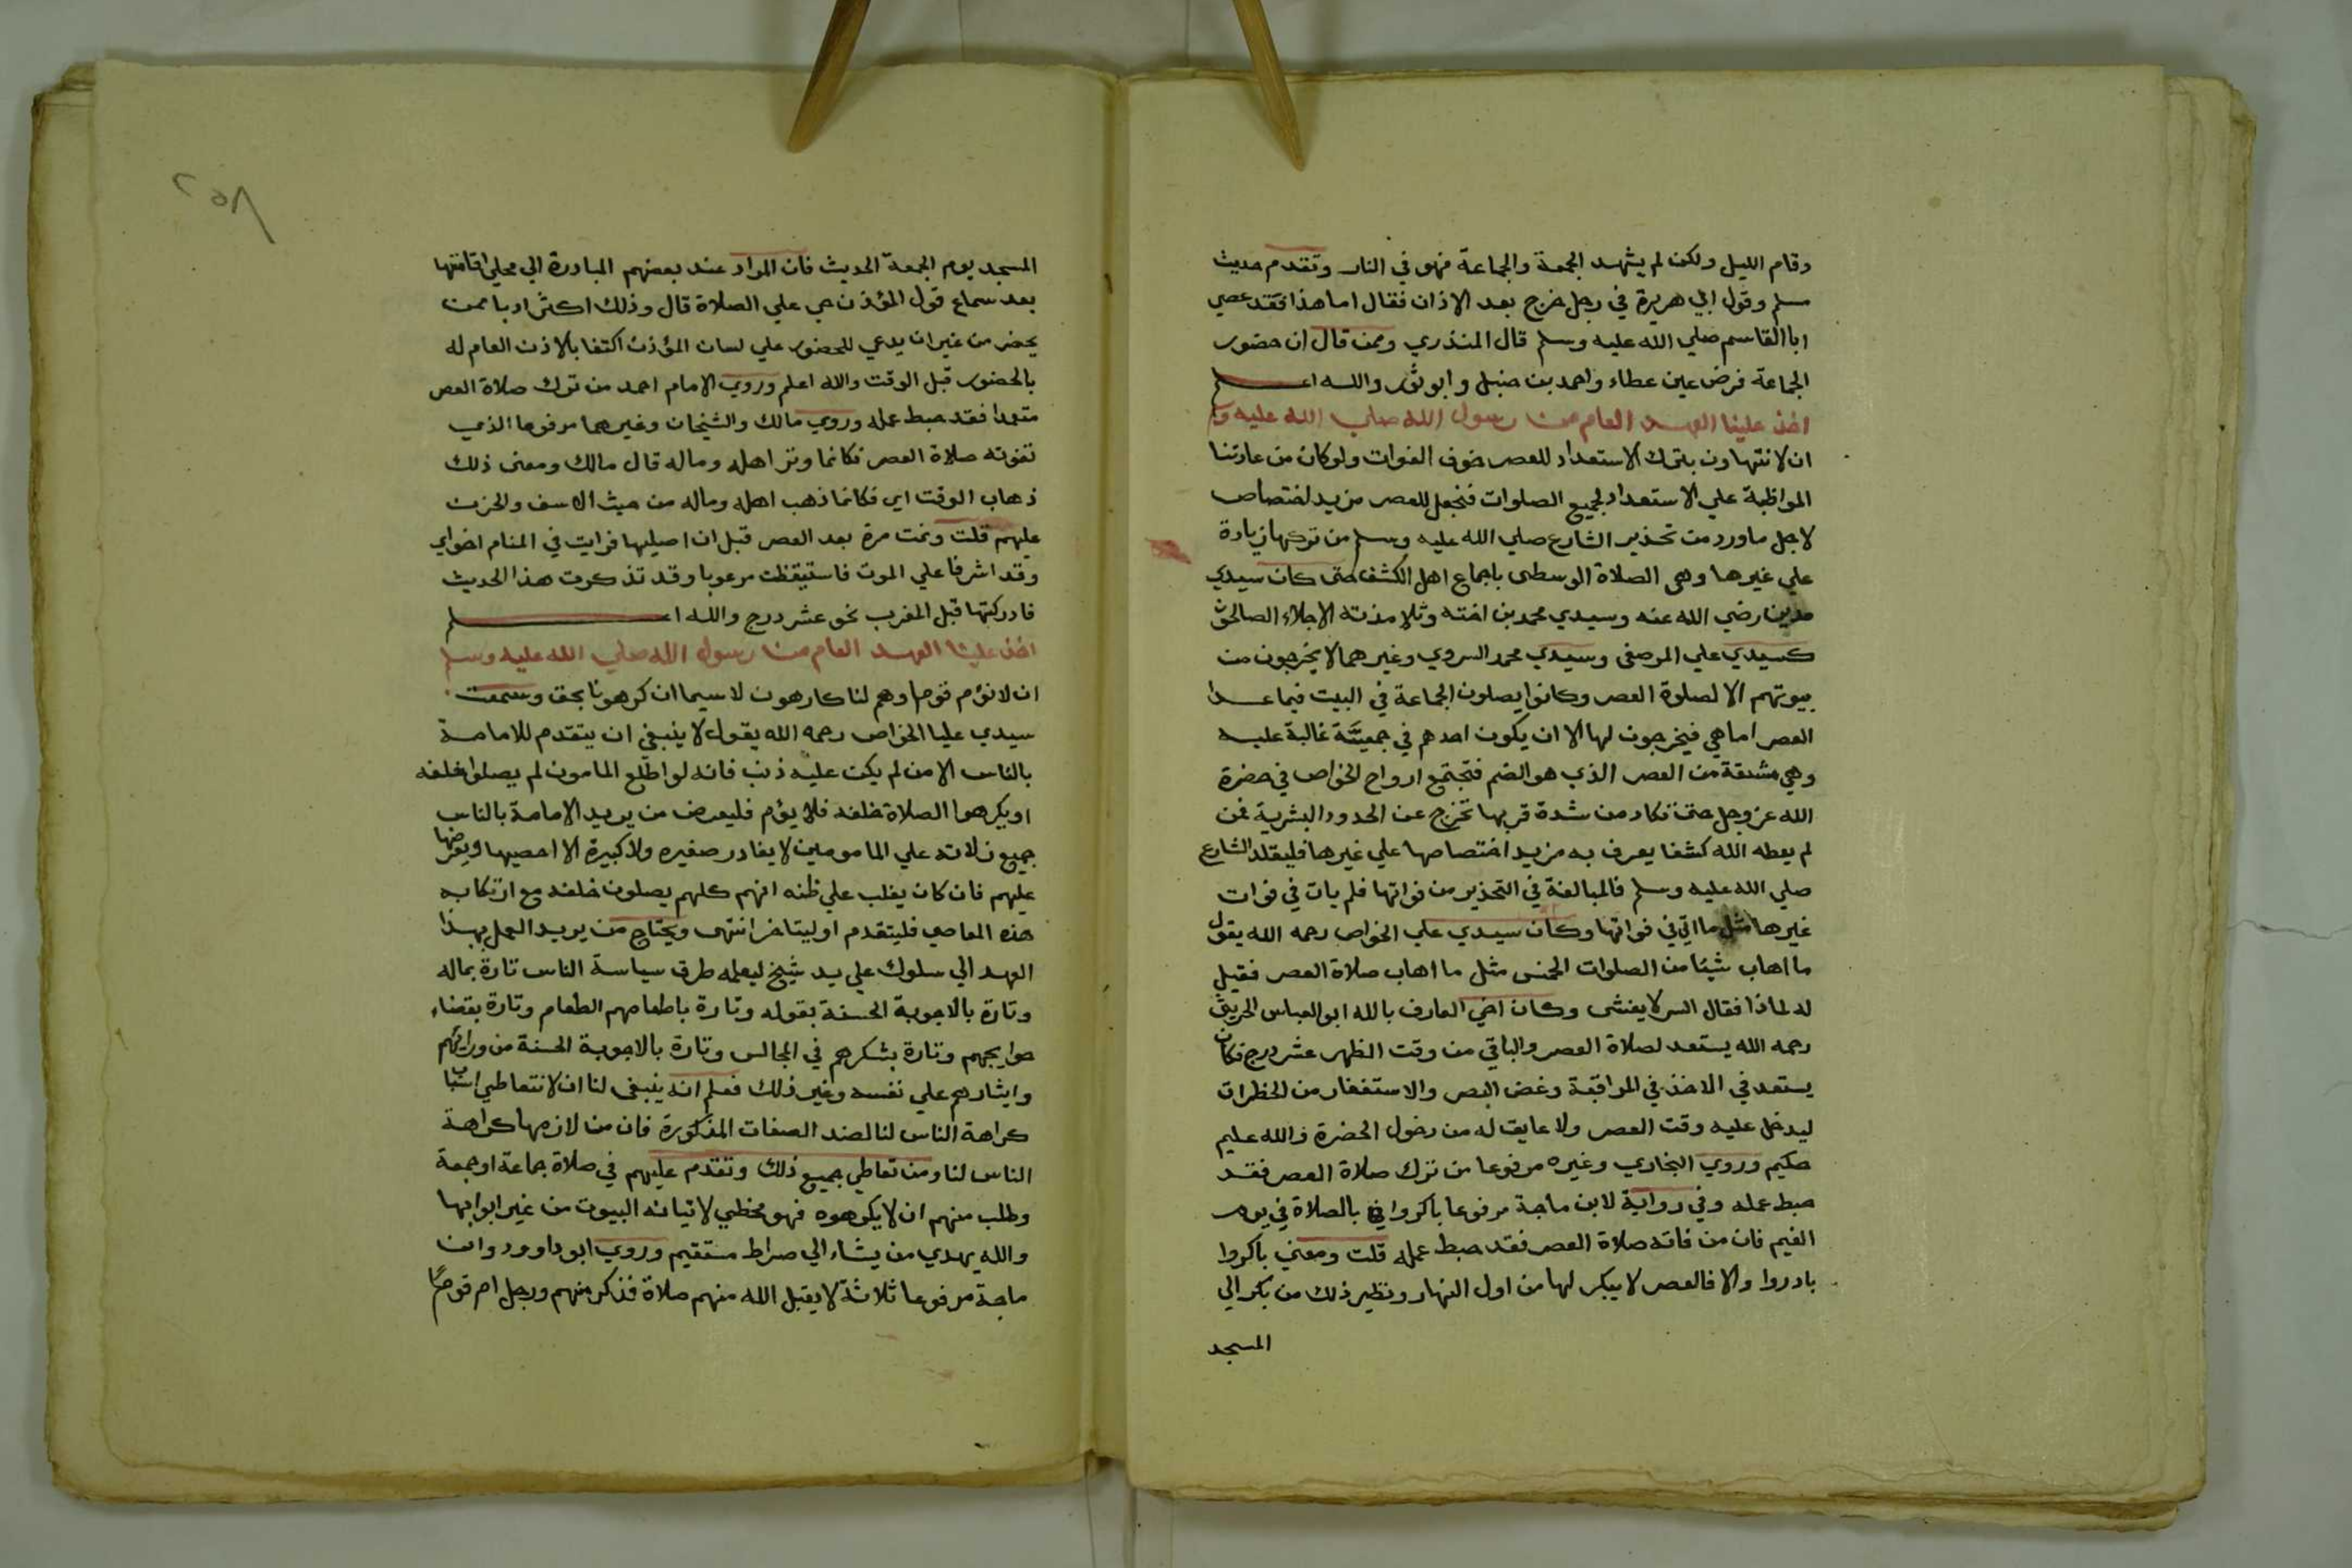 وقام الليل ولكن لم يشهد الجمعة والجماعة فهو في النار وتقدم حديث
مسلم وقول ابي هريرة في رجل خرج بعد الاذان فقال اما هذا فقد عصي
ابا القاسم صلي الله عليه وسلم قال المنذري وممن قال ان حضور
الجماعة فرض عين عطاء واحمد بن حنبل وابو ثور والله اعلم
اخذ علينا العهد العام من رسول الله صلي الله عليه وسلم
ان لا نتهاون بترك الاستعداد للعصر خوف الفوات ولو كان من عادتنا
المواظبة علي الاستعداد لجميع الصلوات فنجعل للعصر مزيد اختصاص
لاجل ما ورد من تحذير الشارع صلي الله عليه وسلم من تركها زيادة
علي غيرها وهي الصلاة الوسطى باجماع اهل الكشف حتى كان سيدي
مدين رضي الله عنه وسيدي محمد بن اخته وتلامذته الاجلاء الصالحون
كسيدي علي المرصفي وسيدي محمد السروي وغيرهما لا يخرجون من
بيوتهم الا لصلوة العصر وكانوا يصلون الجماعة في البيت فيما عدا
العصر اما هي فيخرجون لها الا ان يكون احدهم في جمعية غالبة عليه
وهي مشتقة من العصر الذي هو الضم فتجتمع ارواح الخواص في حضرة
الله عز وجل حتى تكاد من شدة قربها تخرج عن الحدود البشرية فمن
لم يعطه الله كشفا يعرف به مزيد اختصاصها علي غيرها فليقلد الشارع
صلي الله عليه وسلم فالمبالغة في التحذير من فواتها فلم يات في فوات
غيرها مثل ما اتي في فواتها وكان سيدي علي الخواص رحمه الله يقول
ما اهاب شيئا من الصلوات الخمس مثل ما اهاب صلاة العصر فقيل
له لماذا فقال السر لا يفشى وكان اخي العارف بالله ابو العباس الحريثي
رحمه الله يستعد لصلاة العصر والباقي من وقت الظهر عشر درج فكان
يستعد في الاخذ في المراقبة وغض البصر والاستغفار من الخطرات
ليدخل عليه وقت العصر ولا عايق له من دخول الحضرة والله عليم
حكيم وروي البخاري وغيره مرفوعا من ترك صلاة العصر فقد
حبط عمله وفي رواية لابن ماجة مرفوعا باكروا بالصلاة في يوم
الغيم فان من فاته صلاة العصر فقد حبط عمله قلت ومعني باكروا
بادروا والا فالعصر لا يبكر لها من اول النهار ونظير ذلك من بكر الي
المسجد
٢٥٨
المسجد يوم الجمعة الحديث فان المراد عند بعضهم المبادرة الي محل اقامتها
بعد سماع قول المؤذن حي علي الصلاة قال وذلك اكثر ادبا ممن
يحضر من غير ان يدعي للحضور علي لسان المؤذن اكتفا بالاذن العام له
بالحضور قبل الوقت والله اعلم وروي الامام احمد من ترك صلاة العصر
متعمدا فقد حبط عمله وروي مالك والشيخان وغيرهما مرفوعا الذي
تفوته صلاة العصر فكانما وتر اهله وماله قال مالك ومعنى ذلك
ذهاب الوقت اي فكانما ذهب اهله وماله من حيث الاسف والحزن
عليهم قلت ونمت مرة بعد العصر قبل ان اصليها فرايت في المنام اخواي
وقد اشرفا علي الموت فاستيقظت مرعوبا وقد تذكرت هذا الحديث
فادركتها قبل المغرب نحو عشر درج والله اعلم
اخذ علينا العهد العام من رسول الله صلي الله عليه وسلم
ان لا نؤم قوما وهم لنا كارهون لا سيما ان كرهونا بحق وسمعت
سيدي عليا الخواص رحمه الله يقول لا ينبغي ان يتقدم للامامة
بالناس الا من لم يكن عليه ذنب فانه لو اطلع المامون لم يصلوا خلفه
او يكرهوا الصلاة خلفه فلا يؤم فليعرض من يريد الامامة بالناس
جميع زلاته علي المامومين لا يغادر صغيره ولا كبيرة الا احصيها ويعرضها
عليهم فان كان يغلب علي ظنه انهم كلهم يصلون خلفه مع ارتكابه
هذه المعاصي فليتقدم او ليتاخر انتهى ويحتاج من يريد العمل بهذا
العهد الي سلوك علي يد شيخ ليعلمه طرق سياسة الناس تارة بماله
وتارة بالاجوبة الحسنة بقوله وتارة باطعامهم الطعام وتارة بقضاء
حوايجهم وتارة بشكرهم في المجالس وتارة بالاجوبة الحسنة من ورائهم
وايثارهم علي نفسه وغير ذلك فعلم انه ينبغي لنا ان لا نتعاطي اسباب
كراهة الناس لنا لضد الصفات المذكورة فان من لازمها كراهة
الناس لنا ومن تعاطي جميع ذلك وتقدم عليهم في صلاة جماعة او جمعة
وطلب منهم ان لا يكرهوه فهو مخطي لاتيانه البيوت من غير ابوابها
والله يهدي من يشاء الي صراط مستقيم وروي ابو داوود وابن
ماجة مرفوعا ثلاثة لا يقبل الله منهم صلاة فذكر منهم ورجل ام قوما